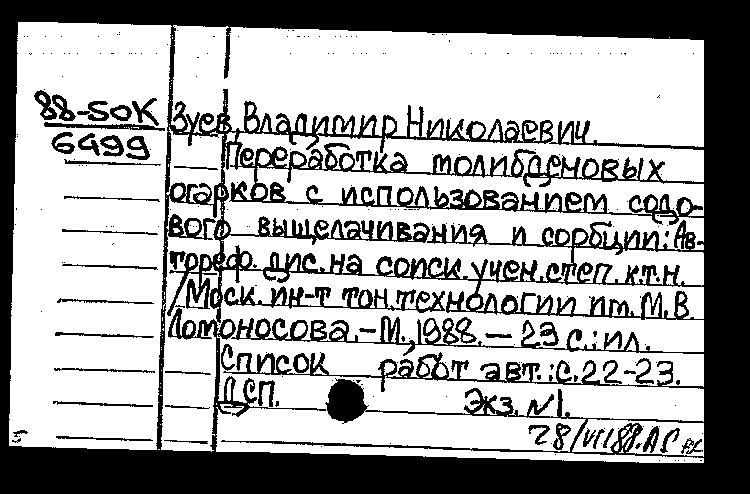 88-5OK
6499
Зуев, Владимир Николаевич.
Переработка молибденовых
огарков с использованием содо-
вого выщелачивания и сорбции: Ав-
тореф. дис. на соиск. учен. степ. к.т.н.
/Моск. ин-т тон. технологии им. М.В.
Ломоносова. – М., 1988. – 23 с.: ил.
Список работ авт.: с. 22-23.
ДСП. Экз. №1.
28/VII 88. АС
5